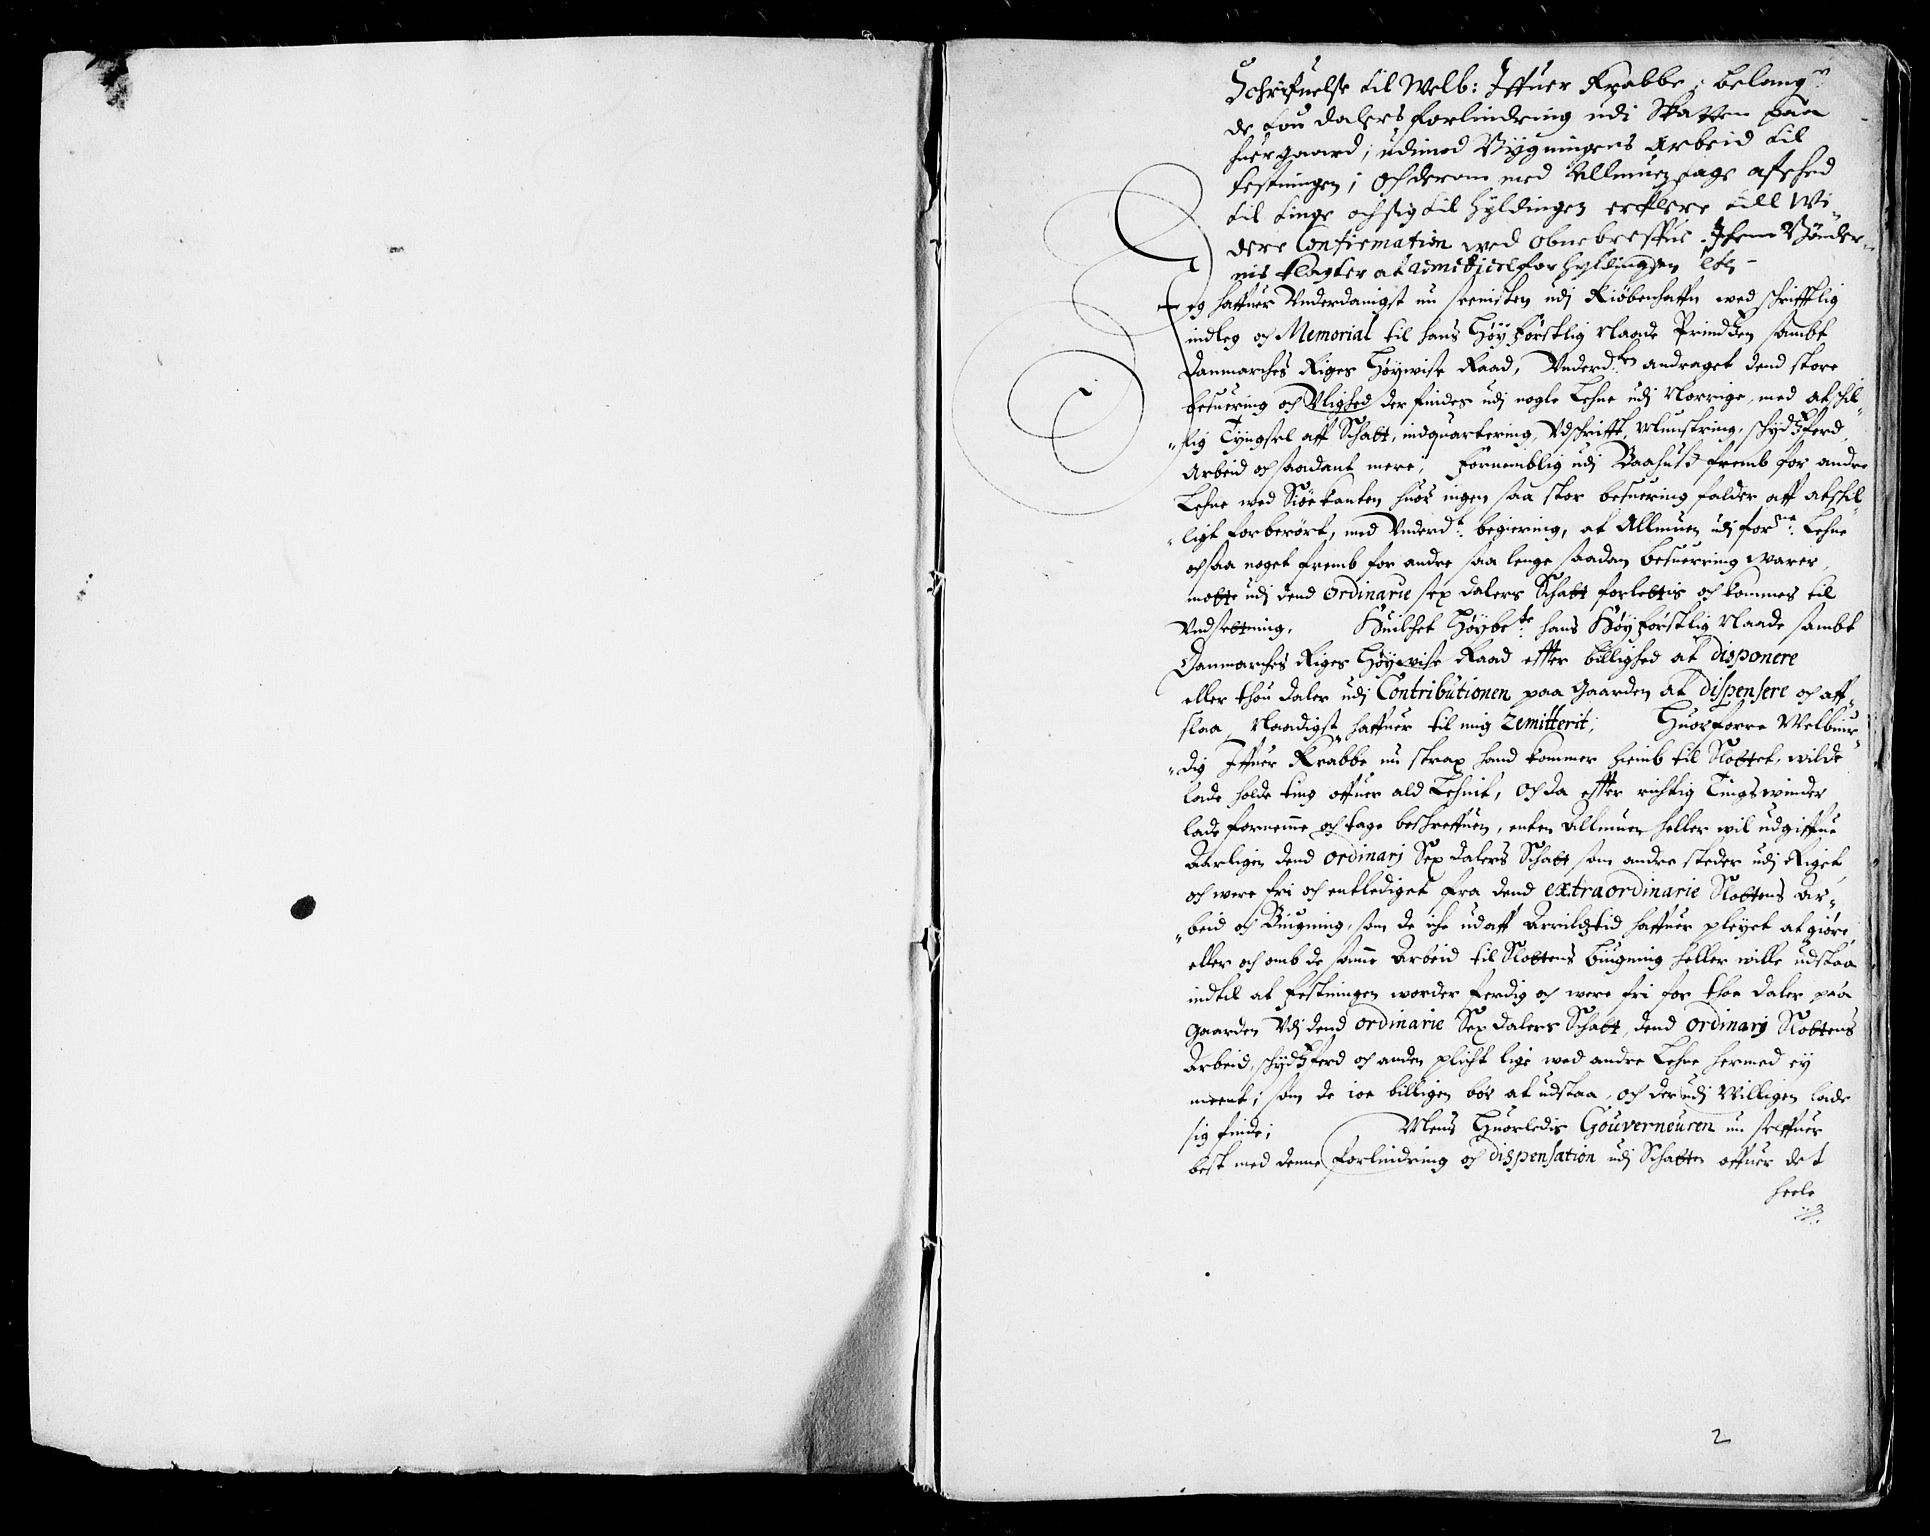 Schrifuelse til Welb: Iffuer Krabbe; belang:
de tou dalers forlindring udi Skatten paa
huer gaard, udimod Bygningens Arbeid til
festningen; och derom med Allmuen tage afsked
til tinge och sig til Hyldingen erklere till Wi¬
dere Confirmation wed obne breffue. Item Bønder¬
nis klagter at remedieres for hyldingen etc
Jeg haffuer Underdanigst nu seenisten udj Kiøbenhaffn wed schrifftlig
indleg och Memorial til hans Høy Førstlig Naade Prindzen sambt
Danmarches Riges Høywise Raad, Underd:ten andraget dend store
besuering och Vlighed der findes udj nogle Lehne udj Norrige, med atschil¬
lig Tyngsel aff Schatt, indquartering, Udschrifft, Munstring, schydzferd
Arbeid och saadant mere, fornemblig udj Baahuss fremb for andre
Lehne wed Siøekanten huor ingen saa stor besuering falder aff atschil¬
ligt forberørt, med Underd:t begiering, at Allmuen udj for:ne Lehne
ochsaa noget fremb for andre saa lenge saadan besuerring warer,
motte udj dend Ordinarie sex dalers Schatt forlettis och kommes til
Undsettning. Huilchet Høybe:te hans Høy Førstlig Naade sambt
Danmarches Riges Høywise Raad effter billighed at disponere
eller thou daler udj Contributionen paa Gaarden at dispensere och aff¬
slaa, Naadigst haffuer til mig remitterit; Huorforre Welbiur¬
dig Iffuer Krabbe nu strax hand kommer hiemb til Slottet, wilde
lade holde ting offuer ald Lehnit, och da effter richtig Tingswinder
lade fornemme och tage beschreffuen, enten Allmuen heller wil udgiffue
Aarligen dend ordinarj Sex dalers Schatt som andre steder udj Riget,
och were fri och entlediget fra dend extraordinarie Slottens Ar¬
beid och Buigning, som de iche udaff Arrildztid haffuer pleyet at giøre,
eller och omb de samme Arbeid til Slottens buigning heller wille udstaa
indtil at festningen worder ferdig och were fri for thoe daler paa
Gaarden Udj dend ordinarie Sex dalers Schatt, dend ordinarj Slottens
Arbeid, schydzferd och anden plicht lige wed andre Lehne hermed ey
meent; som de ioe billigen bør at udstaa, och der udj Willigen lade
sig finde; Mens Huorledis Gouverneuren nu treffuer
best med denne forlindring och dispensation udj Schatten offuer det
heele
2